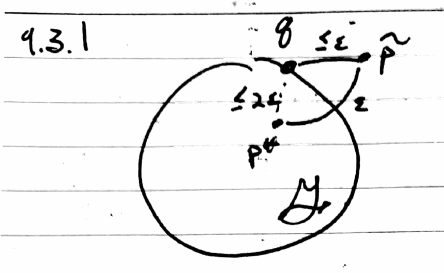 9.3.1
q ≤ε p̃
≤2ε ε
p*